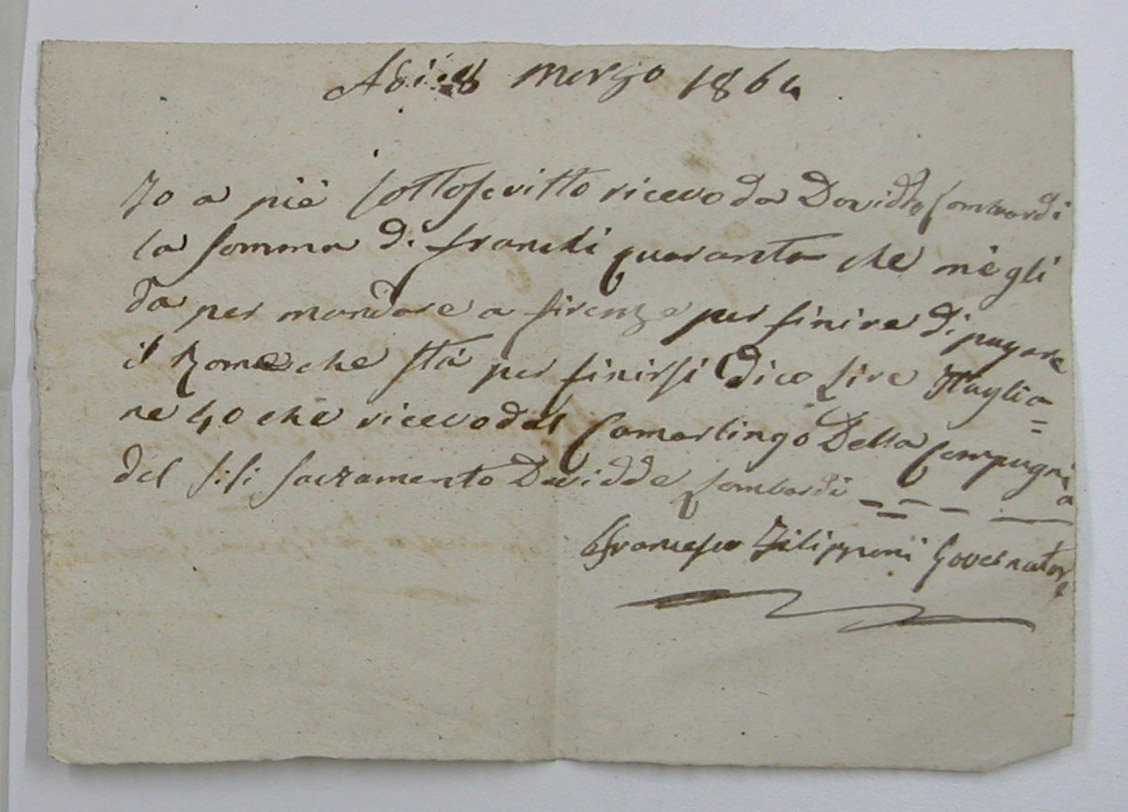 Adi 8 Marzo 1864
Io a piè sottoscritto ricevo da Davidde Lombardi
la somma di franchi quaranta che megli
da per mandare a firenze per finire di pagare
il Rame che sta per finirsi Dico lire Itaglia=
ne 40 che ricevo dal Camarlingo Della Compagnia
del S:S: Sacramento Davidde Lombardi
Francesco Filipponi Governatore